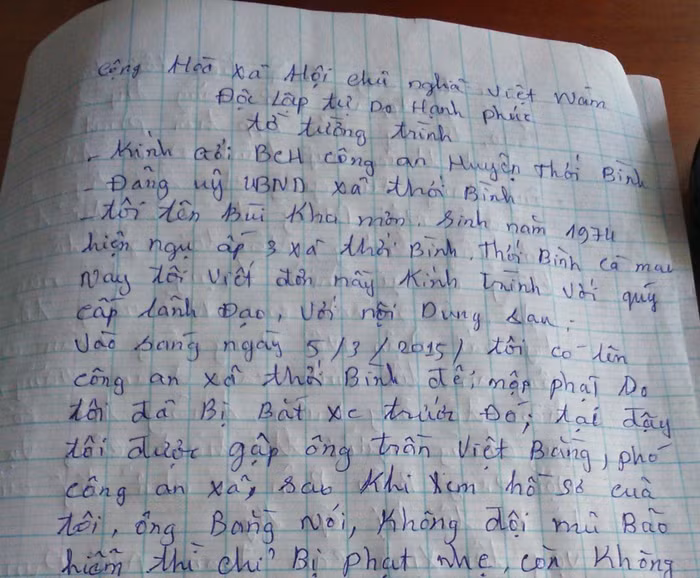 Cộng Hoà xã Hội chũ nghĩa việt Nam
Độc Lập tự Do Hạnh phúc
tờ tường trình
- Kính gởi BCH công an Huyện Thới Bình
- Đảng uỹ UBND xã thới Bình
- tôi tên Bùi Kha môn. Sinh năm 1974
hiện ngụ ấp 3 xã thới Bình, Thới Bình cà mau
Nay tôi viết đơn nầy Kính trình với quý
cấp lãnh Đạo, với nội Dung sau:
Vào sáng ngày 5/3/2015, tôi có lên
công an xã thới Bình để nộp phạt Do
tôi đã Bị Bắt xe trước Đó, tại đây
tôi được gặp ông trần Việt Bằng, phó
công an xã, sau Khi xem hồ sơ của
tôi, ông Bằng Nói, Không đội mũ Bảo
hiểm thì chỉ Bị phạt nhẹ, còn Không